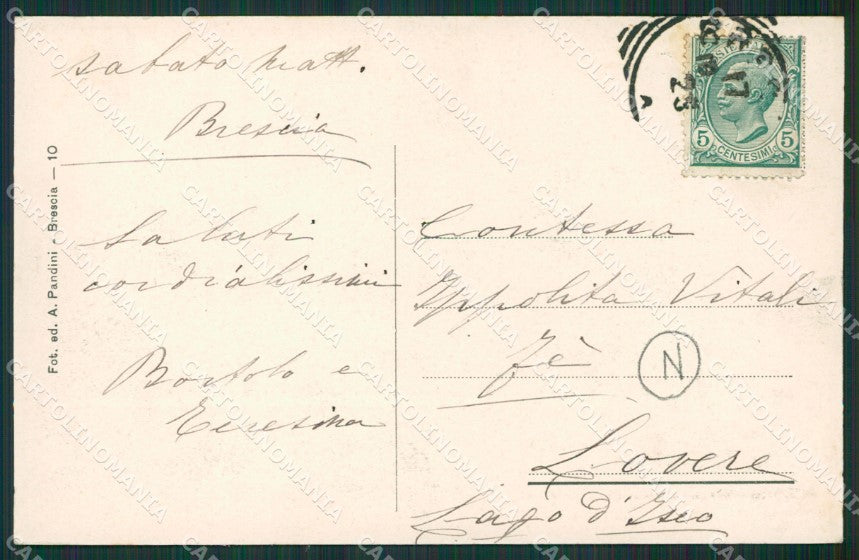 sabato matt.
Brescia
Saluti
cordialissimi
Bortolo e
Teresina
Fot. ed. A. Pandini - Brescia — 10
5 CENTESIMI 5
Contessa
Ippolita Vitali
Fè
N
Lovere
Lago d'Iseo
CARTOLINOMANIA